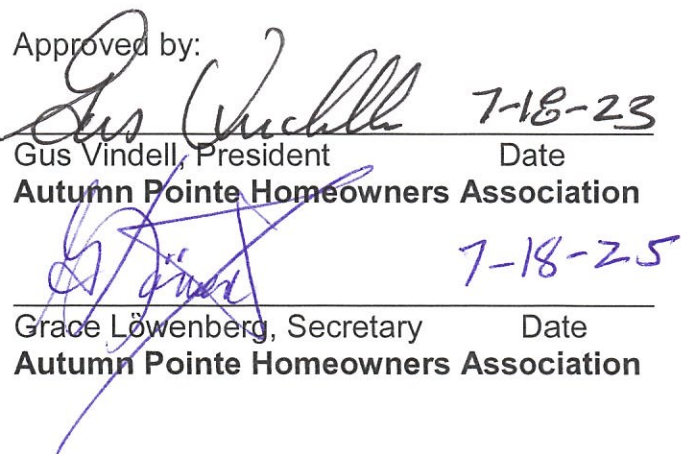 Approved by:
Gus Vindell 7-18-23
Gus Vindell, President Date
Autumn Pointe Homeowners Association
G Löwen 7-18-25
Grace Löwenberg, Secretary Date
Autumn Pointe Homeowners Association